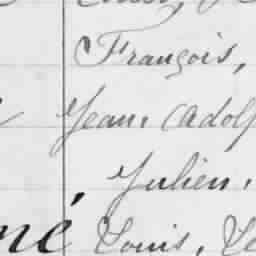 François,
Jean, Adolp
Julien.
né Louis,